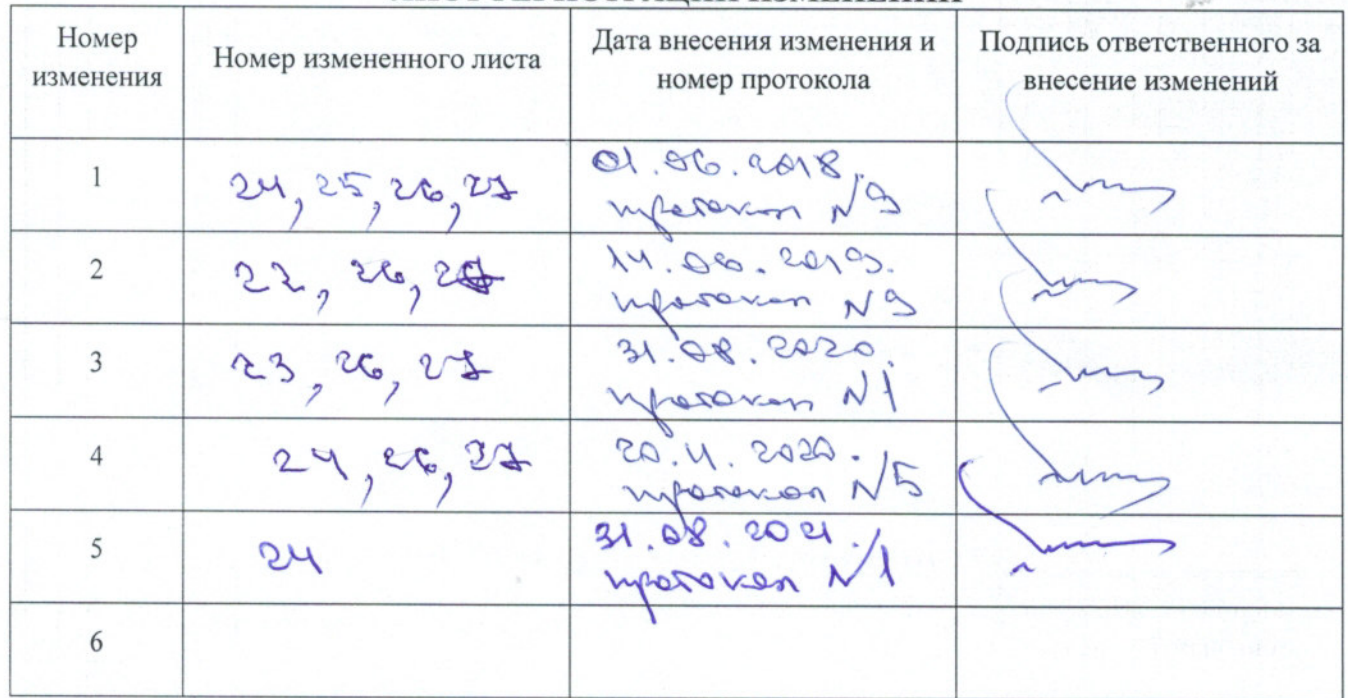 ЛИСТ РЕГИСТРАЦИИ ИЗМЕНЕНИЙ
Номер
изменения
Номер измененного листа
Дата внесения изменения и
номер протокола
Подпись ответственного за
внесение изменений
1
24, 25, 26, 27
01.06.2018.
протокол №9
2
22, 26, 27
14.06.2019.
протокол №9
3
23, 26, 27
31.08.2020.
протокол №1
4
24, 26, 27
20.11.2020.
протокол №5
5
24
31.08.2021.
протокол №1
6